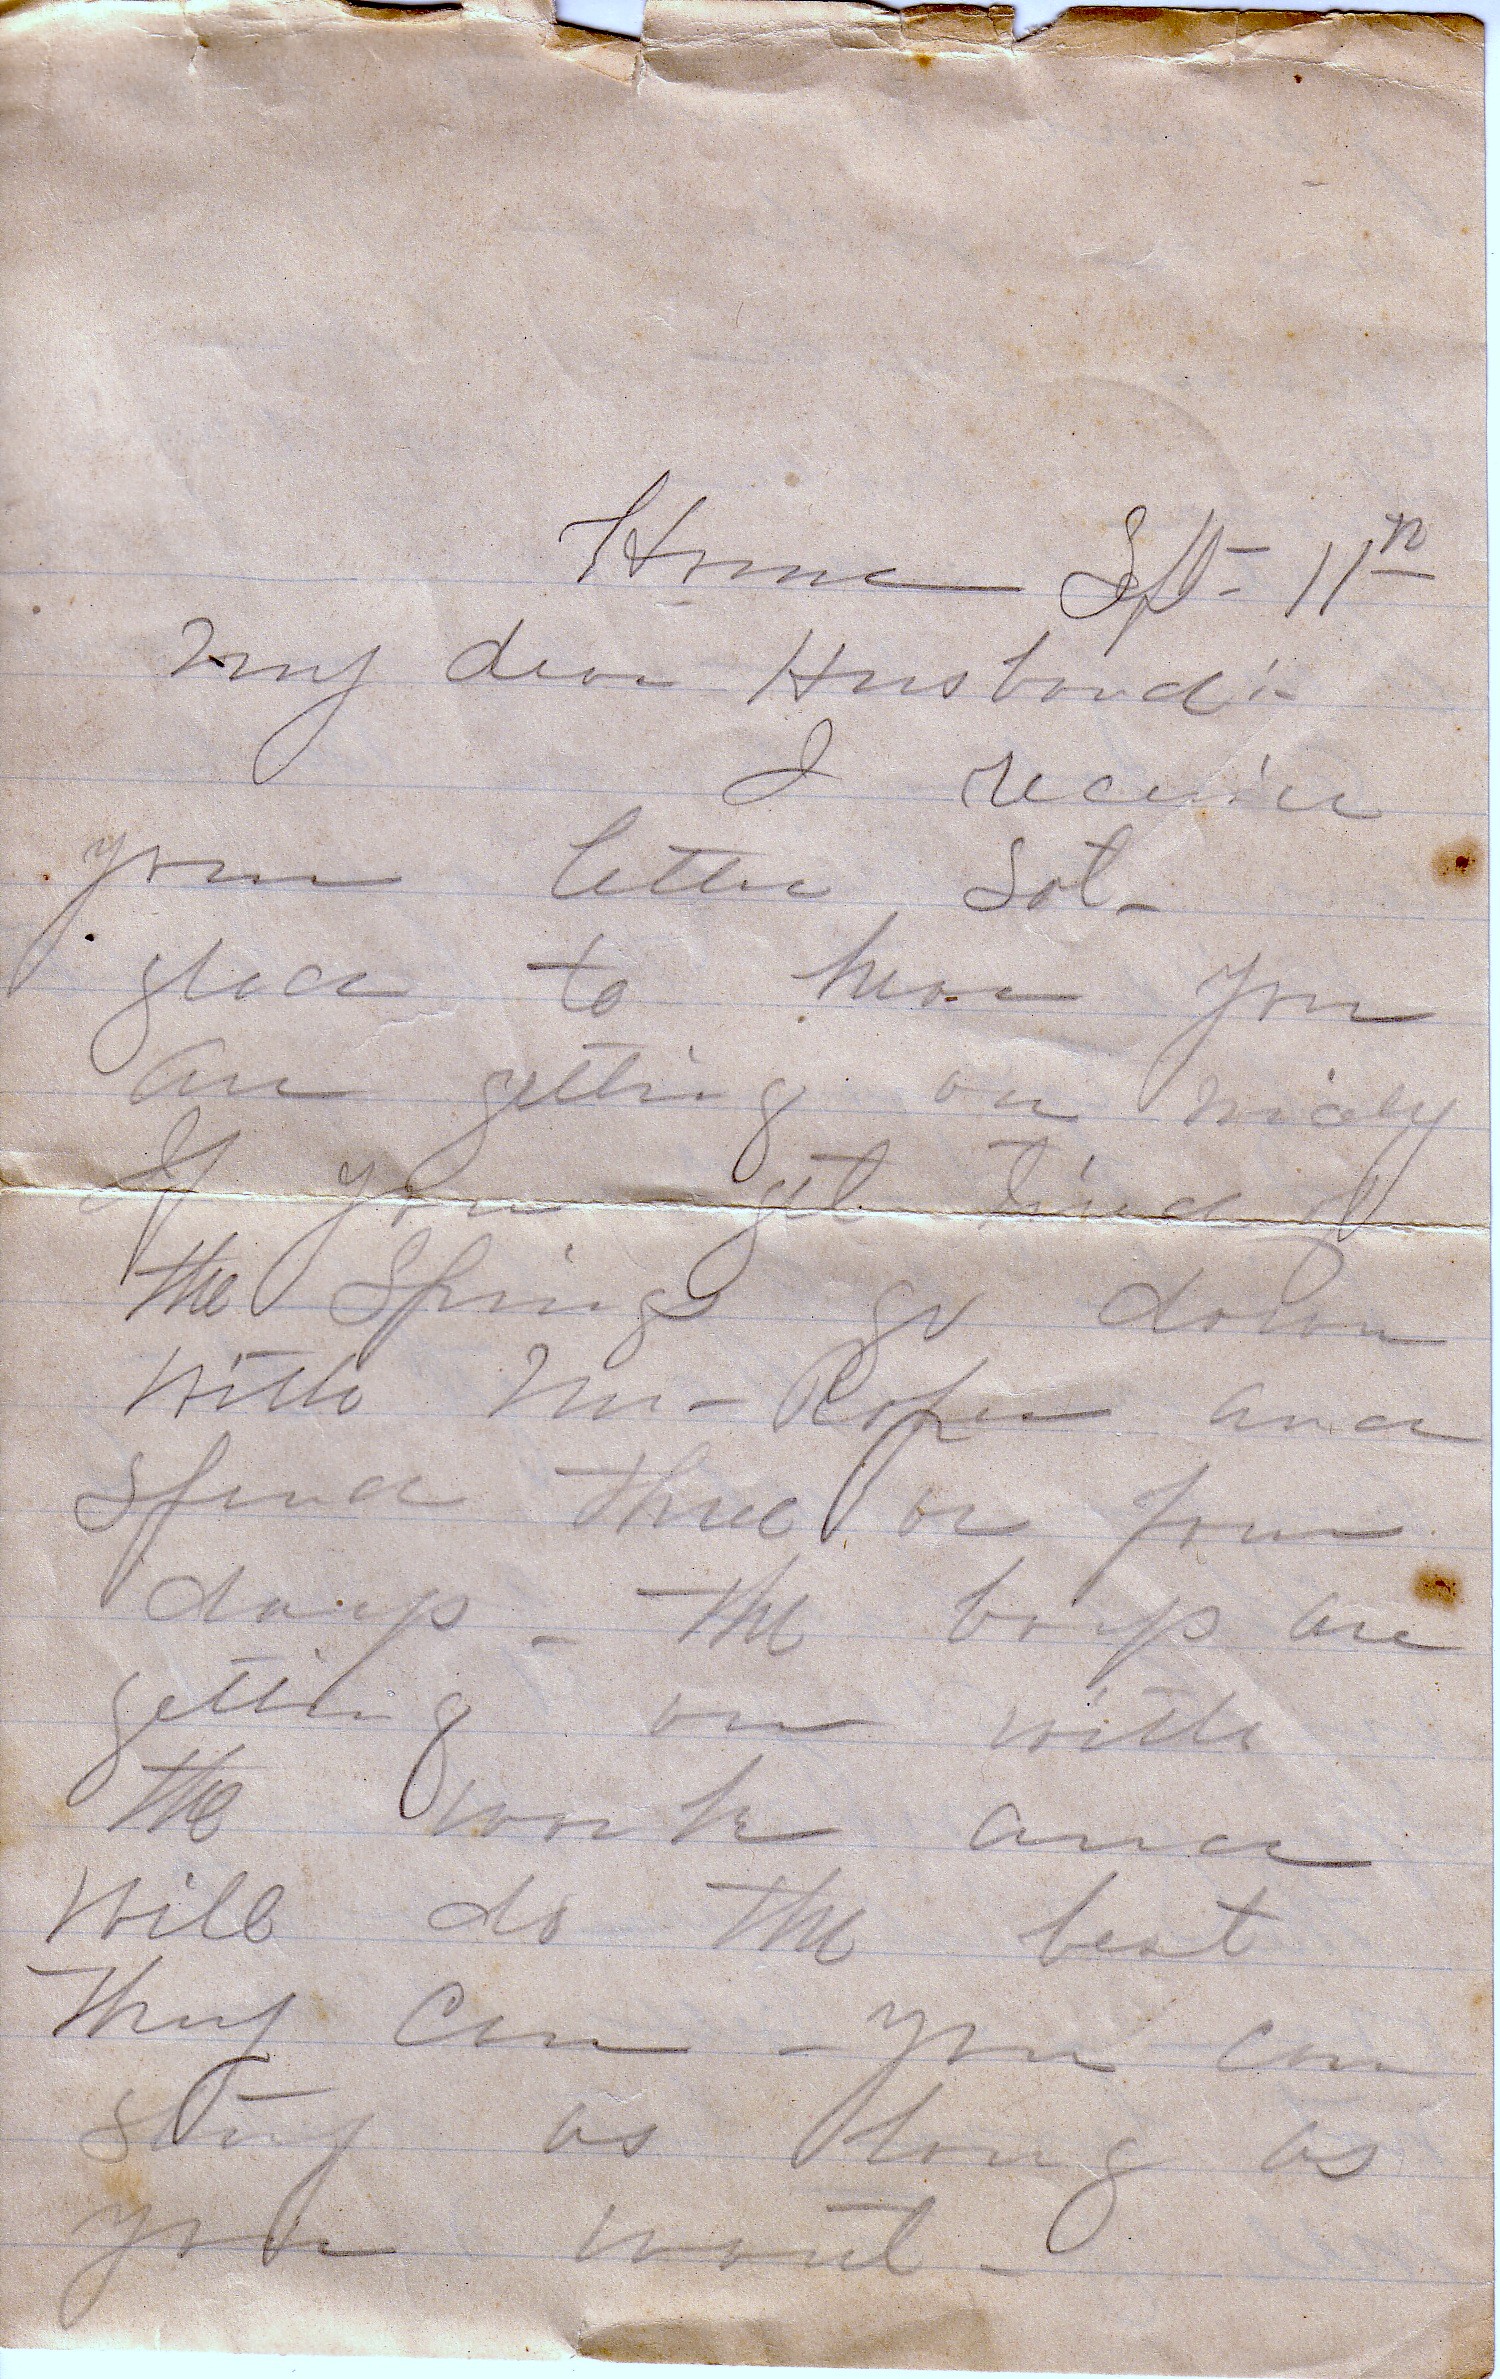 Home Spt- 11th
My dear Husband:-
I receive
your letter Sat-
glad to hear you
are getting on nicely
If you get tired of
the Springs go down
with Mr- Roper and
spend three or four
days - the boys are
getting on with
the work and
will do the best
they can - you can
stay as long as
you want -